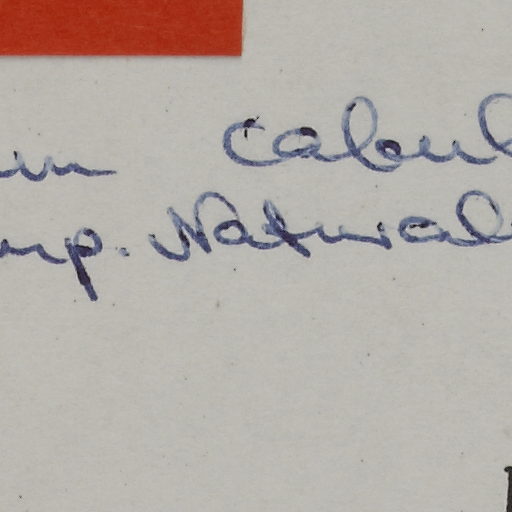 um Cabul
mp. Natural